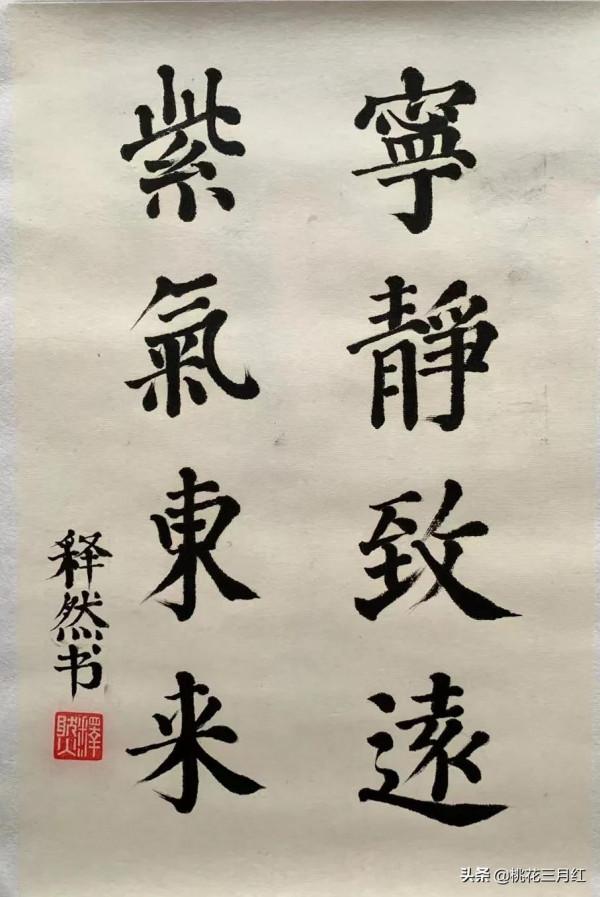 寧靜致遠
紫氣東来
释然书
头条 @桃花三月红